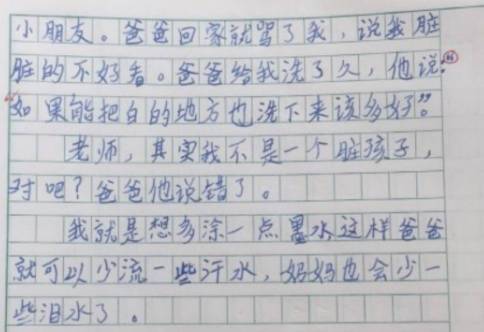 小朋友。爸爸回家就骂了我，说我脏
脏的不好看。爸爸给我洗了久，他说：
“如果能把白的地方也洗下来该多好”。
老师，其实我不是一个脏孩子，
对吧？爸爸他说错了。
我就是想多涂一点墨水这样爸爸
就可以少流一些汗水，妈妈也会少一
些泪水了。